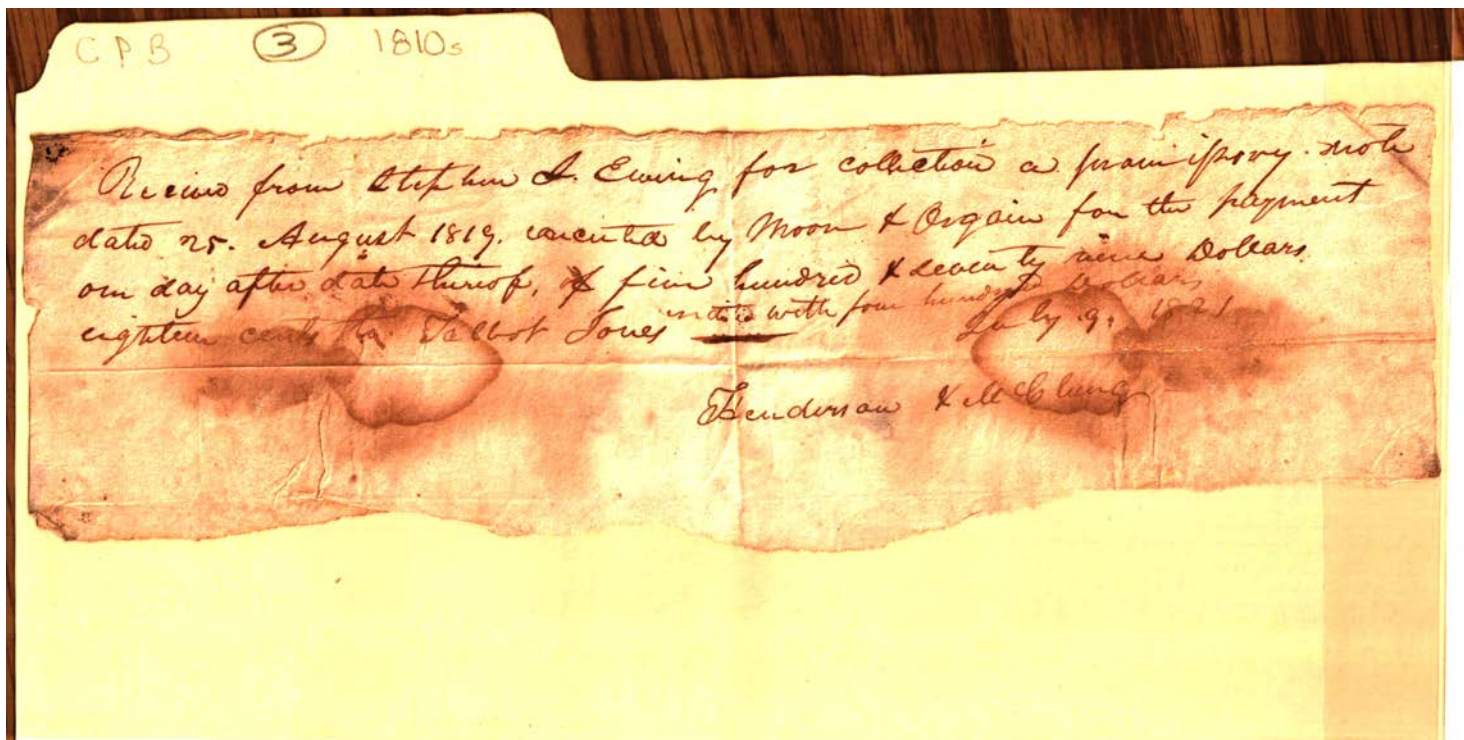 CPB ③ 1810s
Received from Stephen S. Ewing for collection a promissory note
dated 25. August 1819. executed by Moon & Orgain for the payment
one day after date thereof, of five hundred & seventy nine Dollars
eighteen cents to Talbot Jones
with four hundred Dollars
July 9. 1821
Henderson & McClung